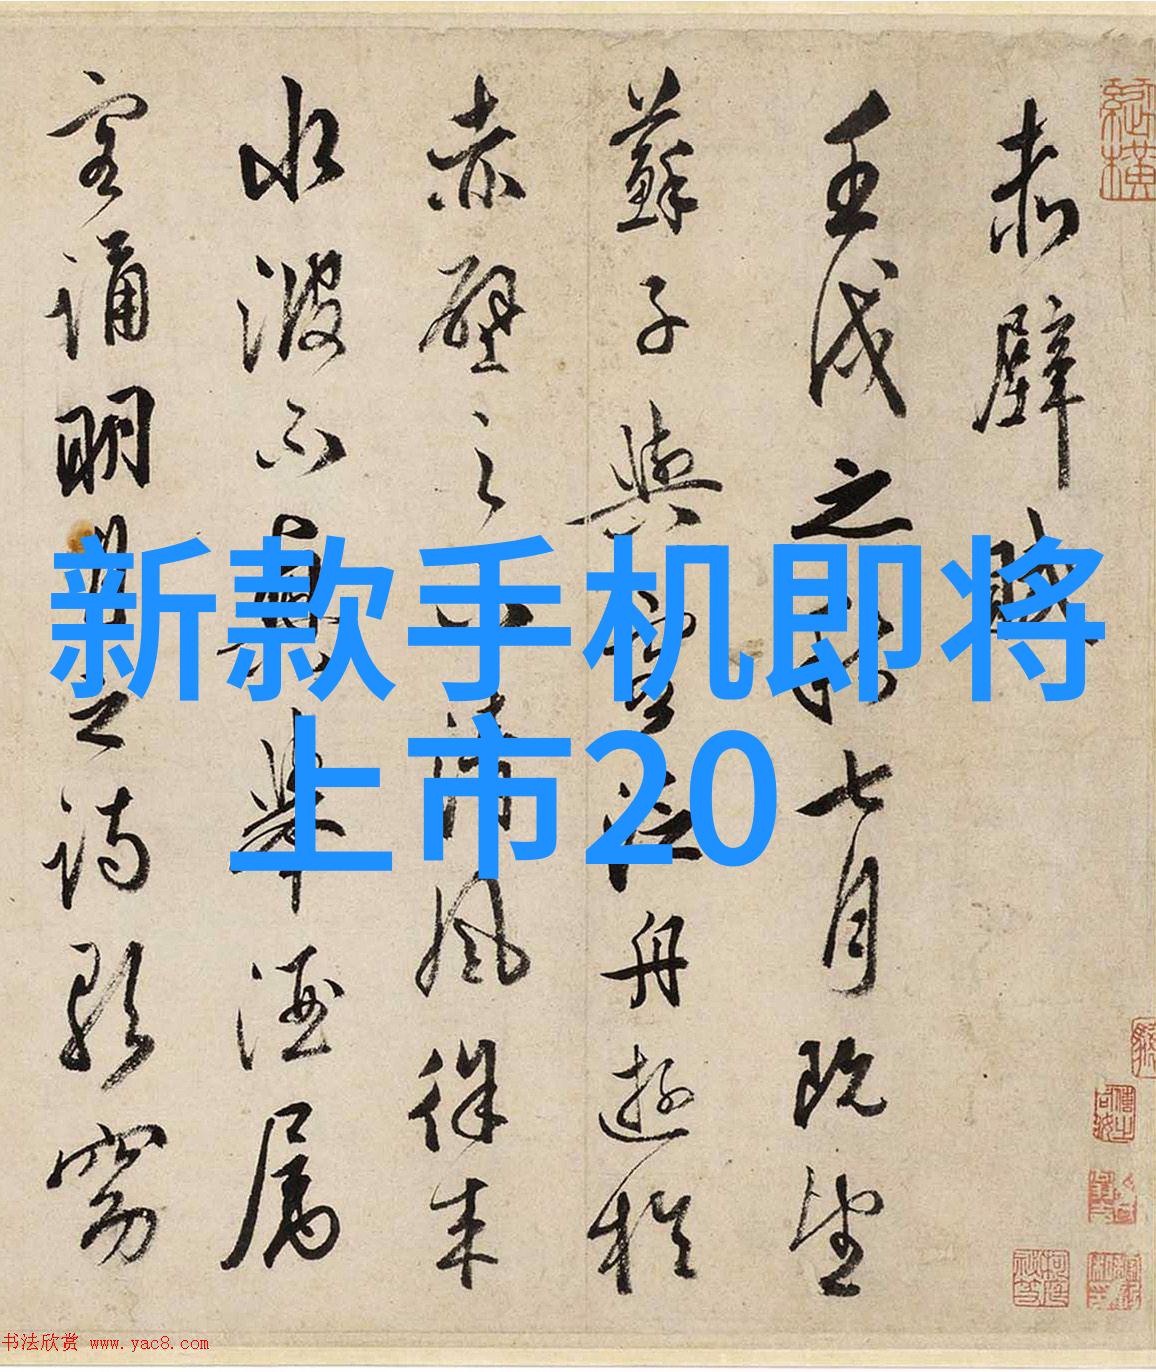 赤壁賦
壬戌之秋七月既望
蘇子與客泛舟遊於
赤壁之下清風徐来
水波不興舉酒属
客誦明月之詩歌窈
新款手机即将
上市20
书法欣赏 www.yac8.com